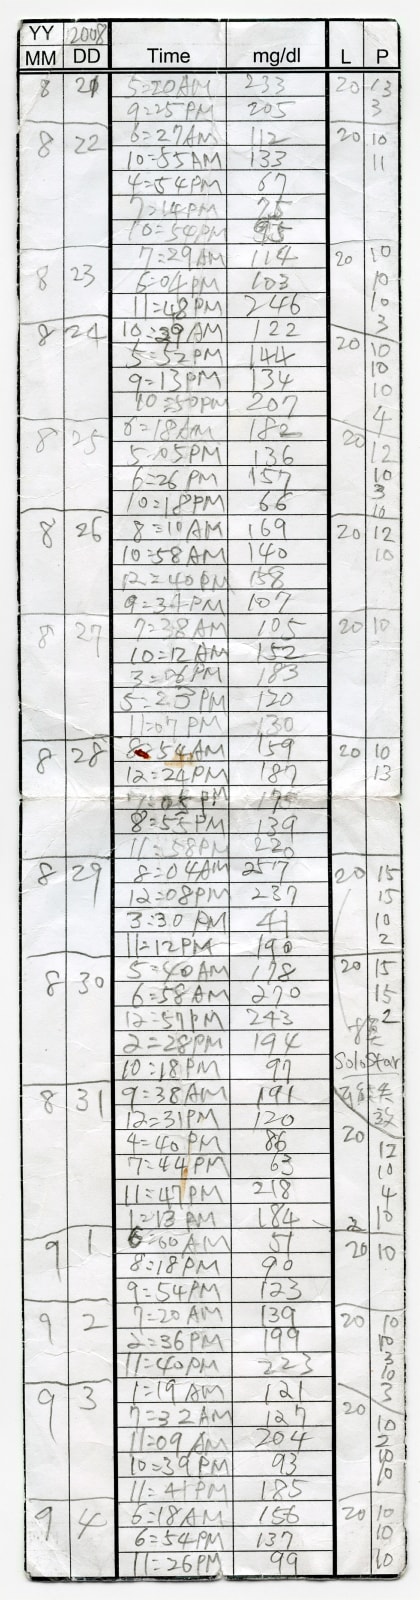 YY 2008
MM DD Time mg/dl L P
8 21 5:20AM 233 20 13
9:25PM 205 3
8 22 6:27AM 112 20 10
10:85AM 133 11
4:54PM 67
7:14PM 75
10:54PM 95
8 23 7:29AM 114 20 10
6:04PM 103 10
11:48PM 246 10
3
8 24 10:39AM 122 20 10
5:52PM 144 10
9:13PM 134 10
10:50PM 207 4
8 25 6:18AM 182 20 12
5:05PM 136 10
6:26PM 157 3
10:18PM 66 10
8 26 8:10AM 169 20 12
10:58AM 140 10
12:40PM 158
9:37PM 107
8 27 7:38AM 105 20 10
10:12AM 152
3:06PM 183
5:23PM 120
11:07PM 130
8 28 8:54AM 159 20 10
12:24PM 187 13
8:55PM 139
11:58PM 220
8 29 8:04AM 257 20 15
12:08PM 237 15
3:30PM 41 10
11:12PM 190 2
8 30 5:40AM 178 20 15
6:58AM 270 15
12:57PM 243 2
2:28PM 194
10:18PM 97 SoloStar
8 31 9:38AM 191 失
12:31PM 120 效
4:40PM 86 20 12
7:44PM 63 10
11:47PM 218 4
1:13AM 184 10
9 1 6:00AM 51 20 10
8:18PM 90
9:54PM 123
9 2 7:20AM 139 20 10
2:36PM 199 10
11:40PM 223 3
10
9 3 1:19AM 121 3
7:32AM 127 20 10
11:09AM 204 2
10:39PM 93 10
11:41PM 185 10
9 4 6:18AM 156 20 10
6:54PM 137 10
11:26PM 99 10